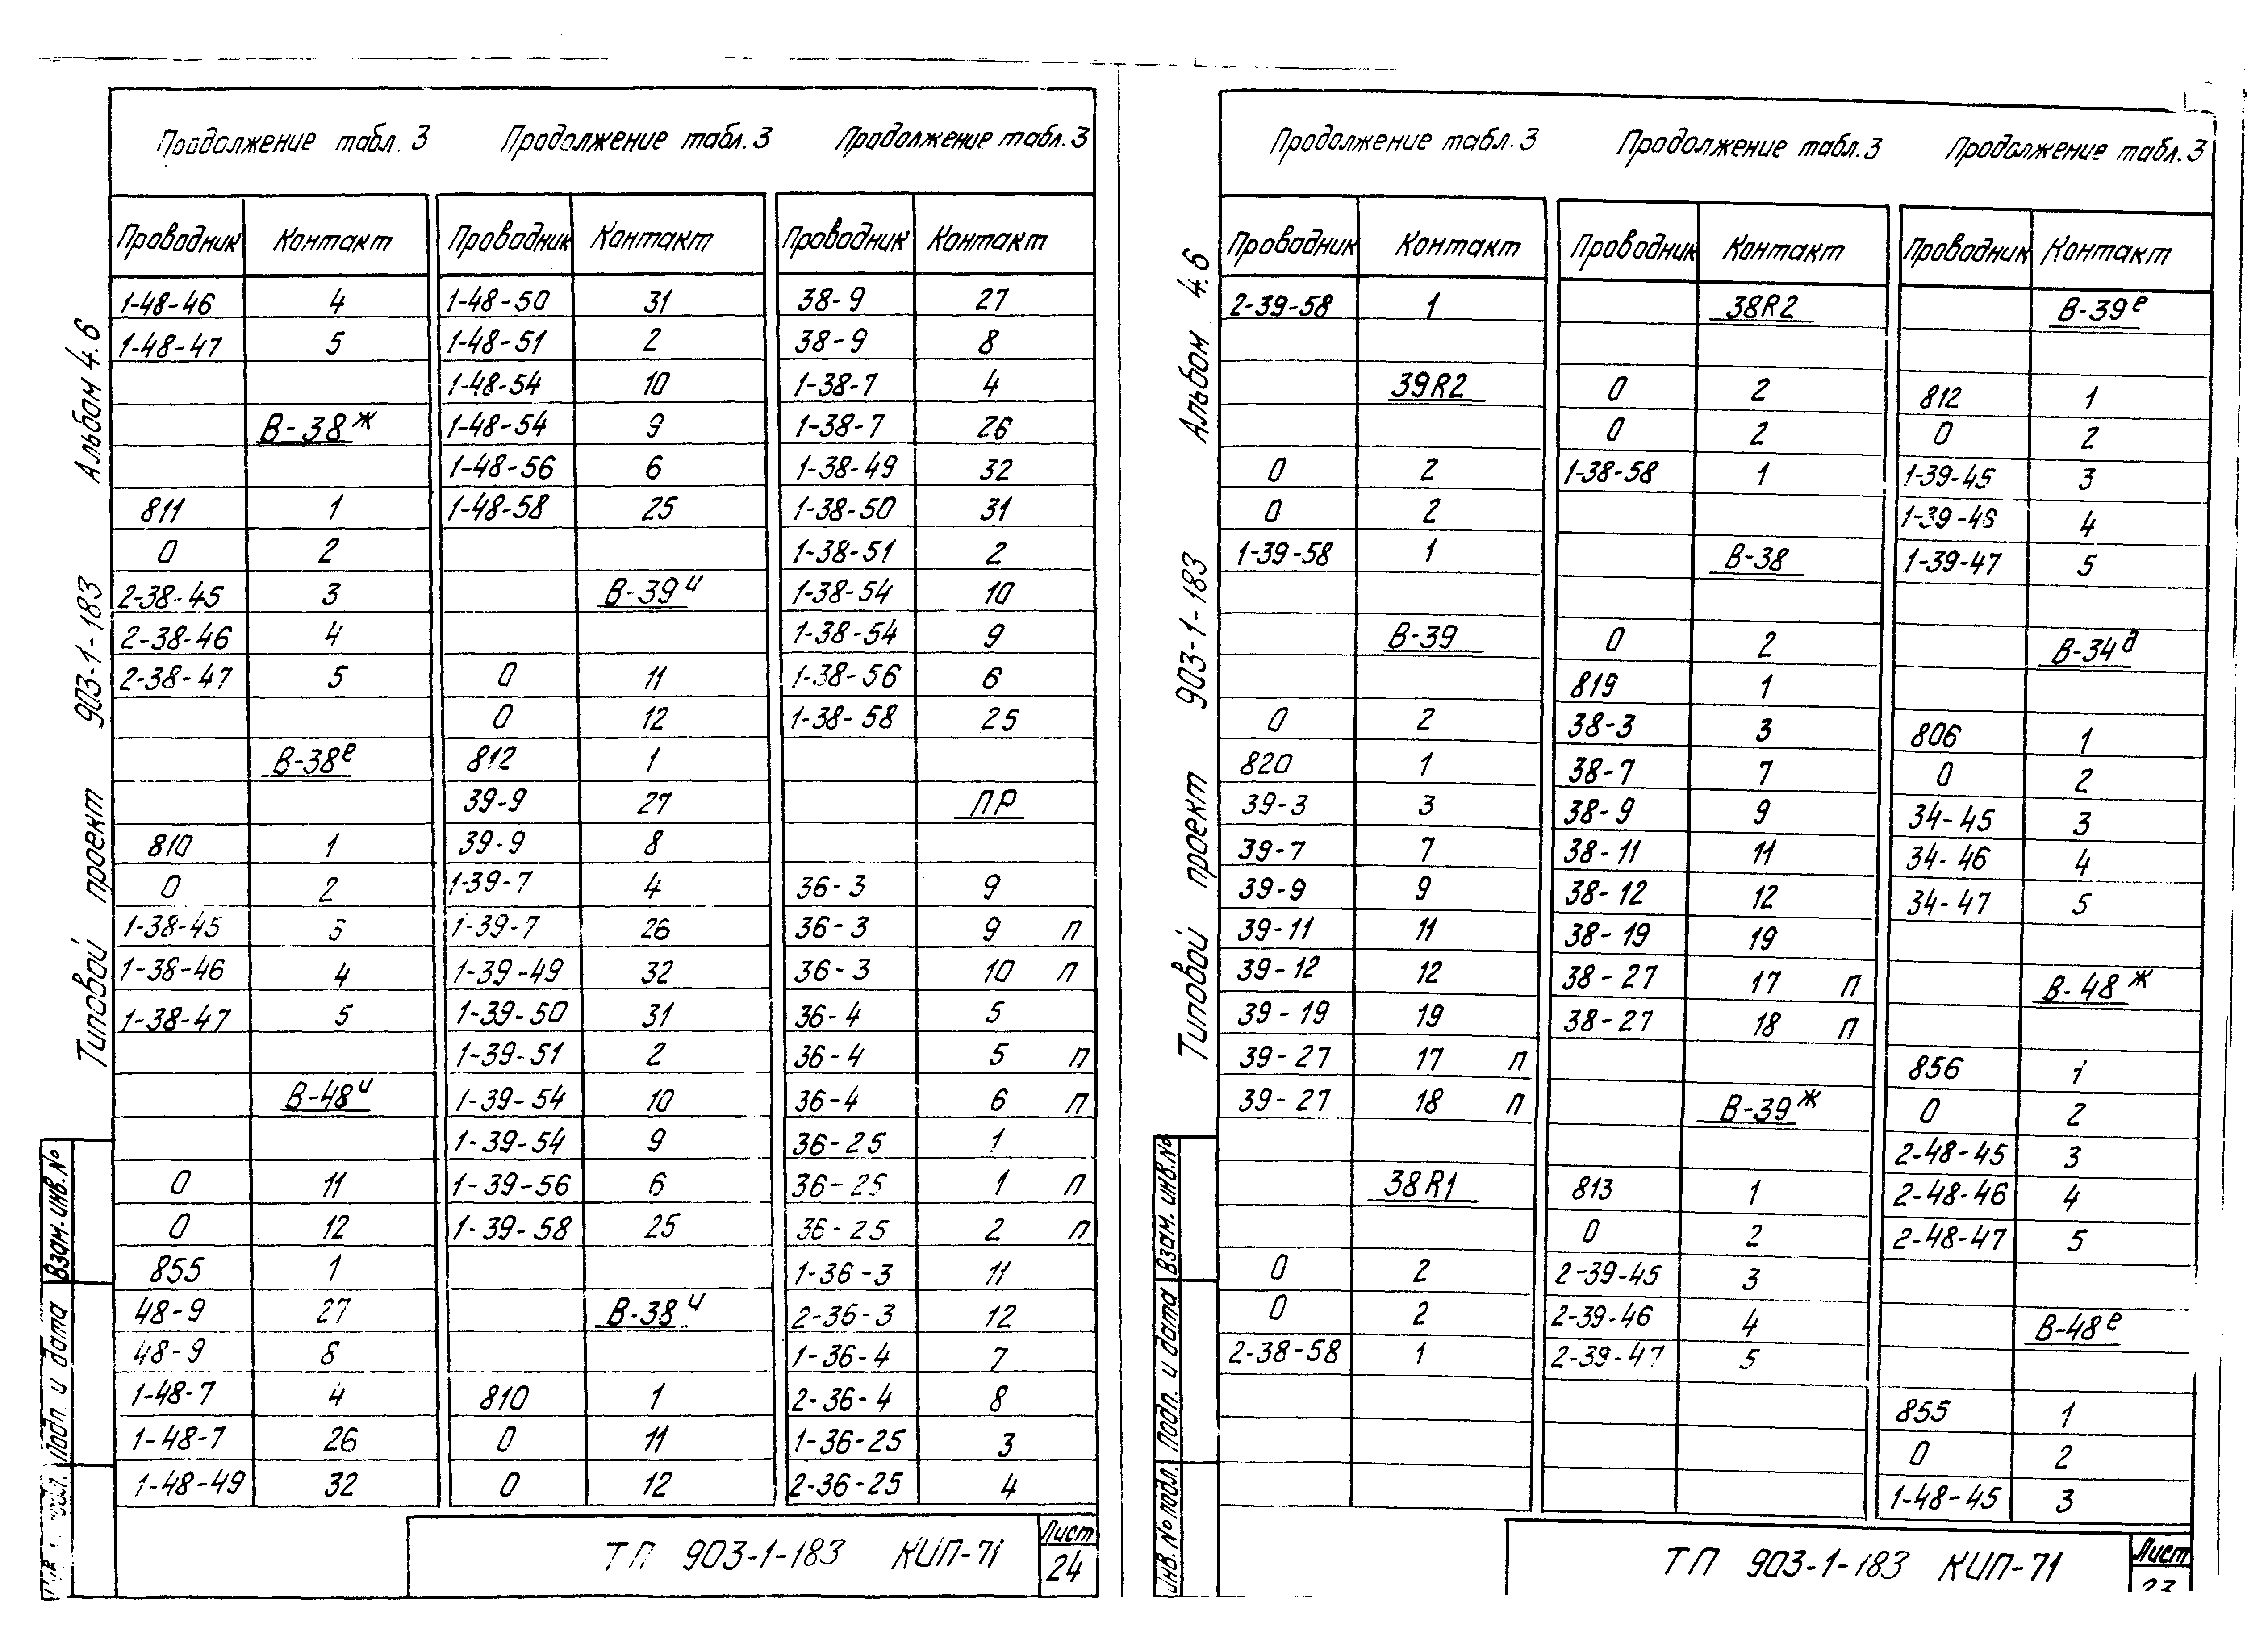 Продолжение табл. 3 Продолжение табл. 3 Продолжение табл. 3
Проводник Контакт Проводник Контакт Проводник Контакт
1-48-46 4 1-48-50 31 38-9 27
1-48-47 5 1-48-51 2 38-9 8
1-48-54 10 1-38-7 4
В-38ж 1-48-54 9 1-38-7 26
1-48-56 6 1-38-49 32
811 1 1-48-58 25 1-38-50 31
0 2 1-38-51 2
2-38-45 3 В-39и 1-38-54 10
2-38-46 4 1-38-54 9
2-38-47 5 0 11 1-38-56 6
0 12 1-38-58 25
В-38е 812 1
39-9 27 ПР
810 1 39-9 8
0 2 1-39-7 4 36-3 9
1-38-45 3 1-39-7 26 36-3 9 п
1-38-46 4 1-39-49 32 36-3 10 п
1-38-47 5 1-39-50 31 36-4 5
1-39-51 2 36-4 5 п
В-48и 1-39-54 10 36-4 6 п
1-39-54 9 36-25 1
0 11 1-39-56 6 36-25 1 п
0 12 1-39-58 25 36-25 2 п
855 1 1-36-3 11
48-9 27 В-38и 2-36-3 12
48-9 8 1-36-4 7
1-48-7 4 810 1 2-36-4 8
1-48-7 26 0 11 1-36-25 3
1-48-49 32 0 12 2-36-25 4
ТП 903-1-183 КИП-71
Лист
24
Типовой проект 903-1-183 Альбом 4.6
Взам. инв. №
Подп. и дата
Продолжение табл. 3 Продолжение табл. 3 Продолжение табл. 3
Проводник Контакт Проводник Контакт Проводник Контакт
2-39-58 1 38R2 В-39е
39R2 0 2 812 1
0 2 0 2
0 2 1-38-58 1 1-39-45 3
0 2 1-39-46 4
1-39-58 1 В-38 1-39-47 5
В-39 0 2 В-34д
819 1
0 2 38-3 3 806 1
820 1 38-7 7 0 2
39-3 3 38-9 9 34-45 3
39-7 7 38-11 11 34-46 4
39-9 9 38-12 12 34-47 5
39-11 11 38-19 19
39-12 12 38-27 17 п В-48ж
39-19 19 38-27 18 п
39-27 17 п 856 1
39-27 18 п В-39ж 0 2
2-48-45 3
38R1 813 1 2-48-46 4
0 2 2-48-47 5
0 2 2-39-45 3
0 2 2-39-46 4 В-48е
2-38-58 1 2-39-47 5
855 1
0 2
1-48-45 3
ТП 903-1-183 КИП-71
Лист
Типовой проект 903-1-183 Альбом 4.6
Взам. инв. №
Подп. и дата
Инв. № подл.